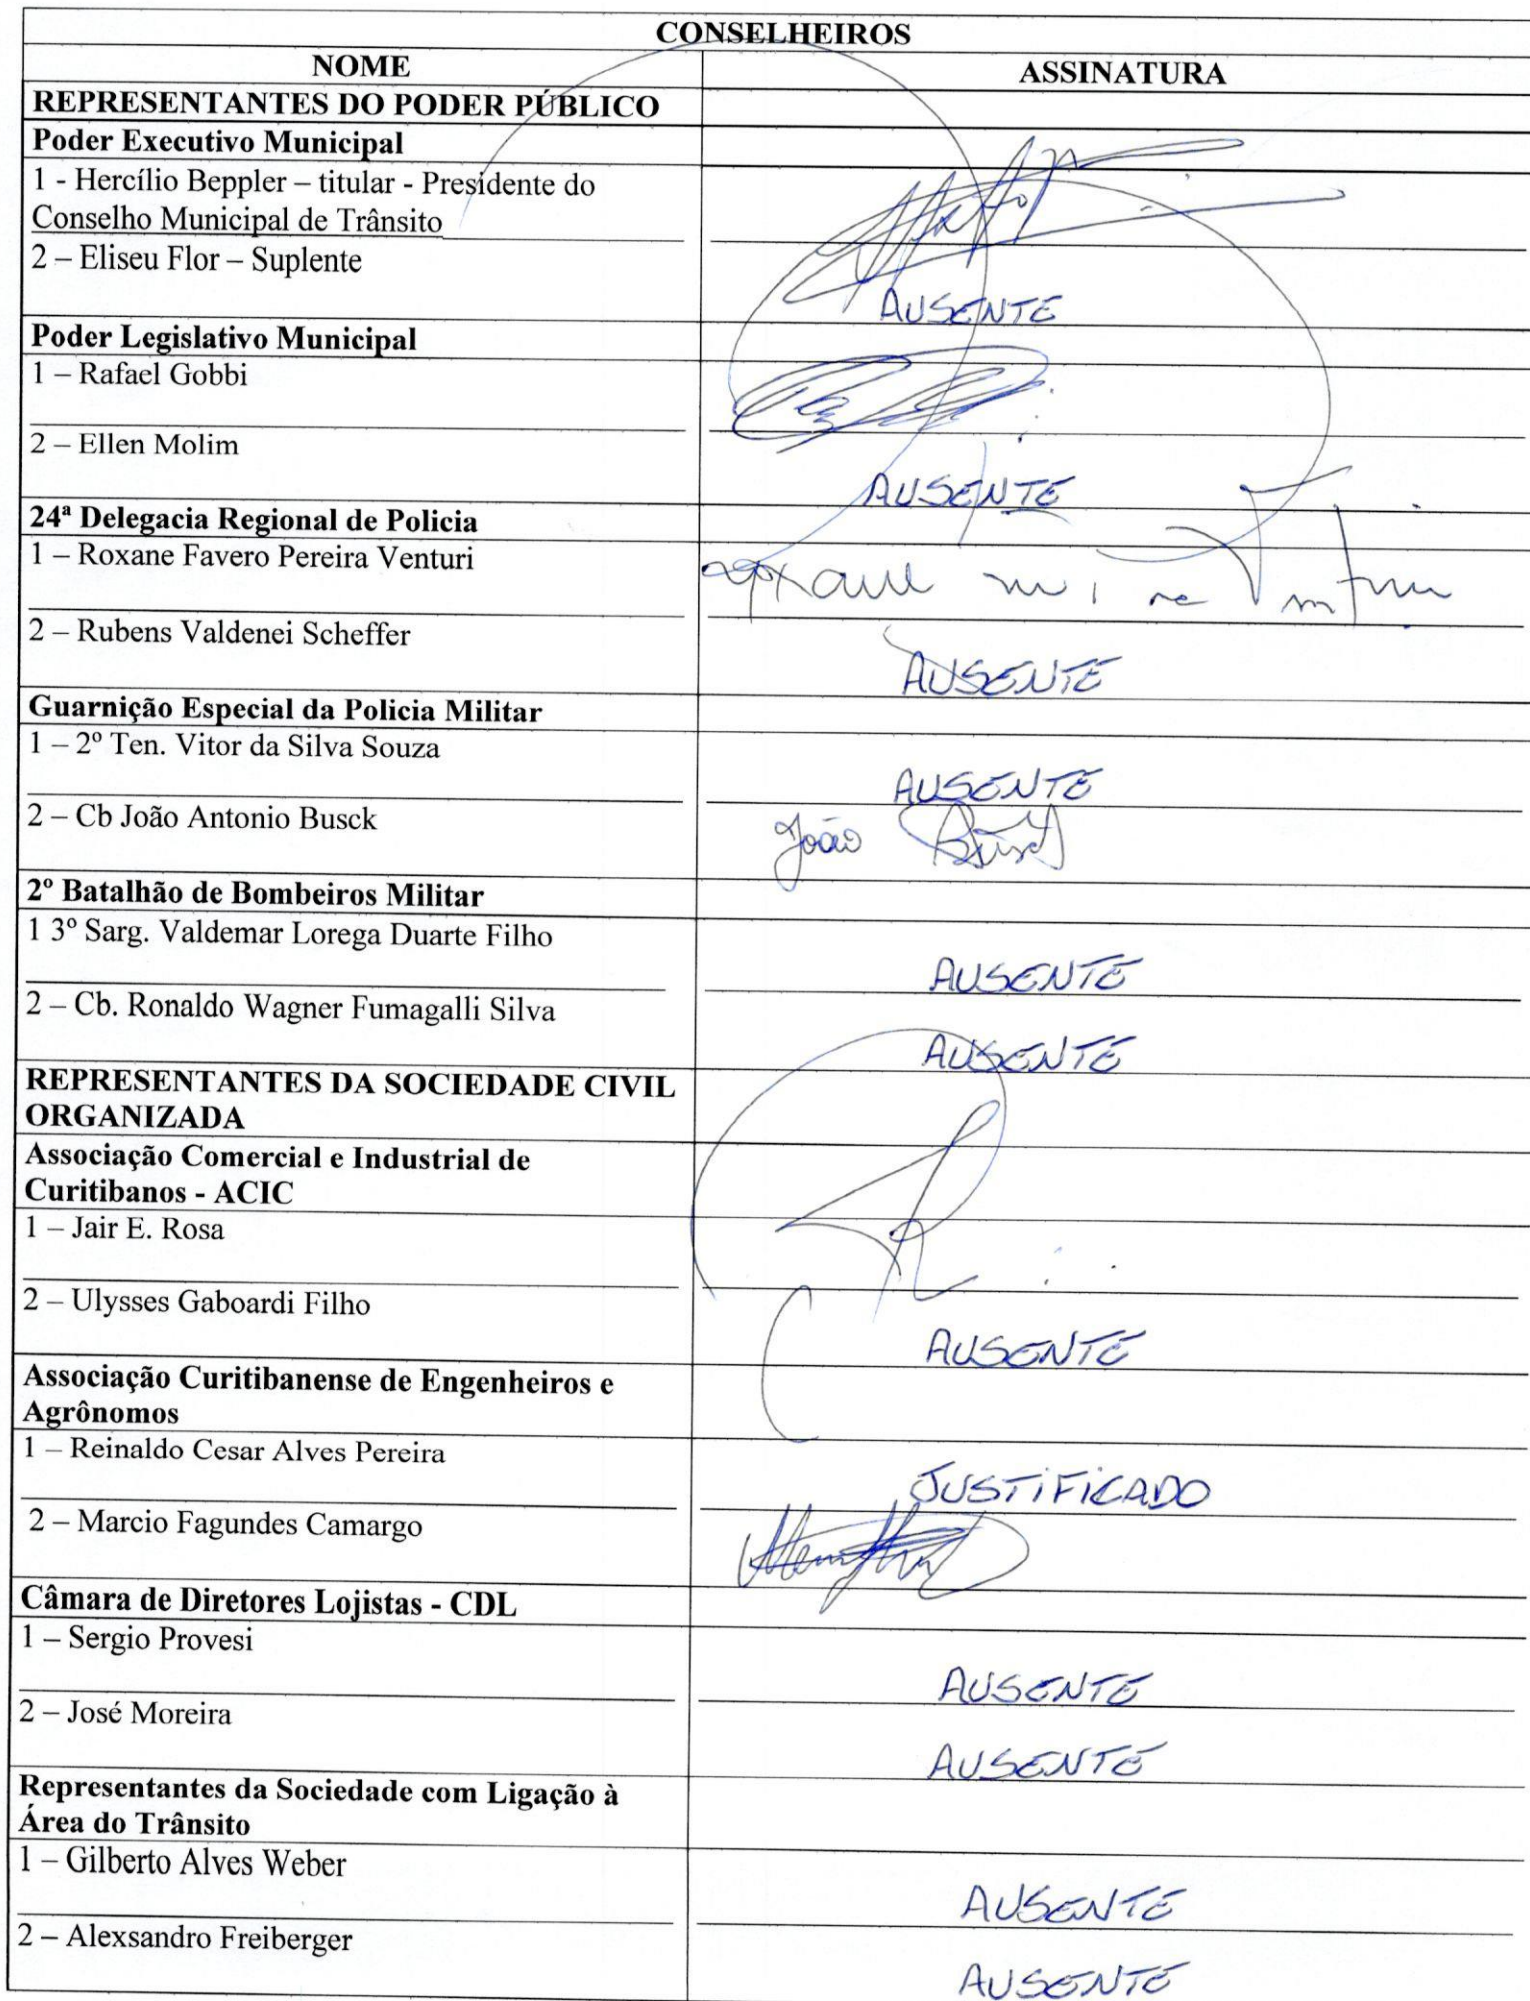 CONSELHEIROS
NOME ASSINATURA
REPRESENTANTES DO PODER PÚBLICO
Poder Executivo Municipal
1 - Hercílio Beppler – titular - Presidente do
Conselho Municipal de Trânsito
2 – Eliseu Flor – Suplente
AUSENTE
Poder Legislativo Municipal
1 – Rafael Gobbi
2 – Ellen Molim
AUSENTE
24ª Delegacia Regional de Policia
1 – Roxane Favero Pereira Venturi
2 – Rubens Valdenei Scheffer
AUSENTE
Guarnição Especial da Policia Militar
1 – 2º Ten. Vitor da Silva Souza
AUSENTE
2 – Cb João Antonio Busck
João Busck
2º Batalhão de Bombeiros Militar
1 3º Sarg. Valdemar Lorega Duarte Filho
AUSENTE
2 – Cb. Ronaldo Wagner Fumagalli Silva
AUSENTE
REPRESENTANTES DA SOCIEDADE CIVIL
ORGANIZADA
Associação Comercial e Industrial de
Curitibanos - ACIC
1 – Jair E. Rosa
2 – Ulysses Gaboardi Filho
AUSENTE
Associação Curitibanense de Engenheiros e
Agrônomos
1 – Reinaldo Cesar Alves Pereira
JUSTIFICADO
2 – Marcio Fagundes Camargo
Câmara de Diretores Lojistas - CDL
1 – Sergio Provesi
AUSENTE
2 – José Moreira
AUSENTE
Representantes da Sociedade com Ligação à
Área do Trânsito
1 – Gilberto Alves Weber
AUSENTE
2 – Alexsandro Freiberger
AUSENTE